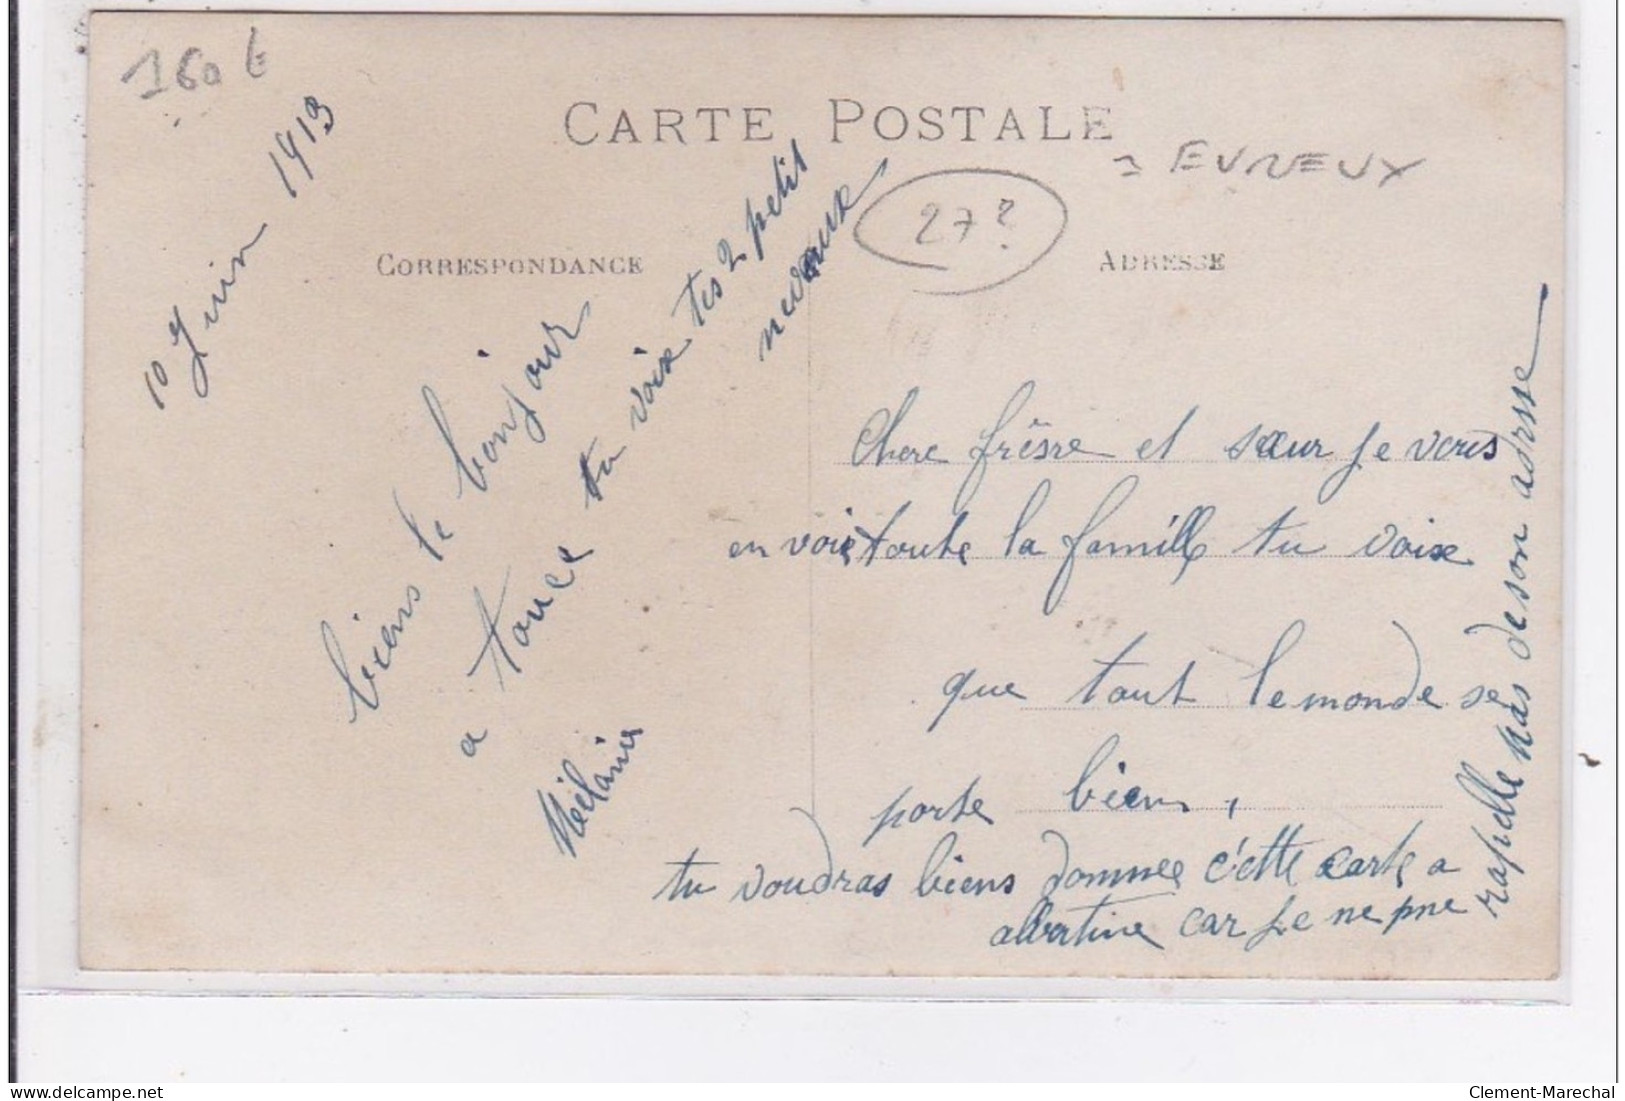 160 E
CARTE POSTALE
= EVREUX
27?
CORRESPONDANCE
ADRESSE
10 Juin 1913
biens le bonjour
a touce tu voix tes 2 petit
nevaux
Mélanie
Chere frêsre et sœur je vous
envoie toute la famille tu voix
que tout le monde se
porte biens,
tu voudras biens donnee c'ette carte a
albertine car je ne me
rapelle pas de son adrsse
delcampe.net
Clement-Marechal